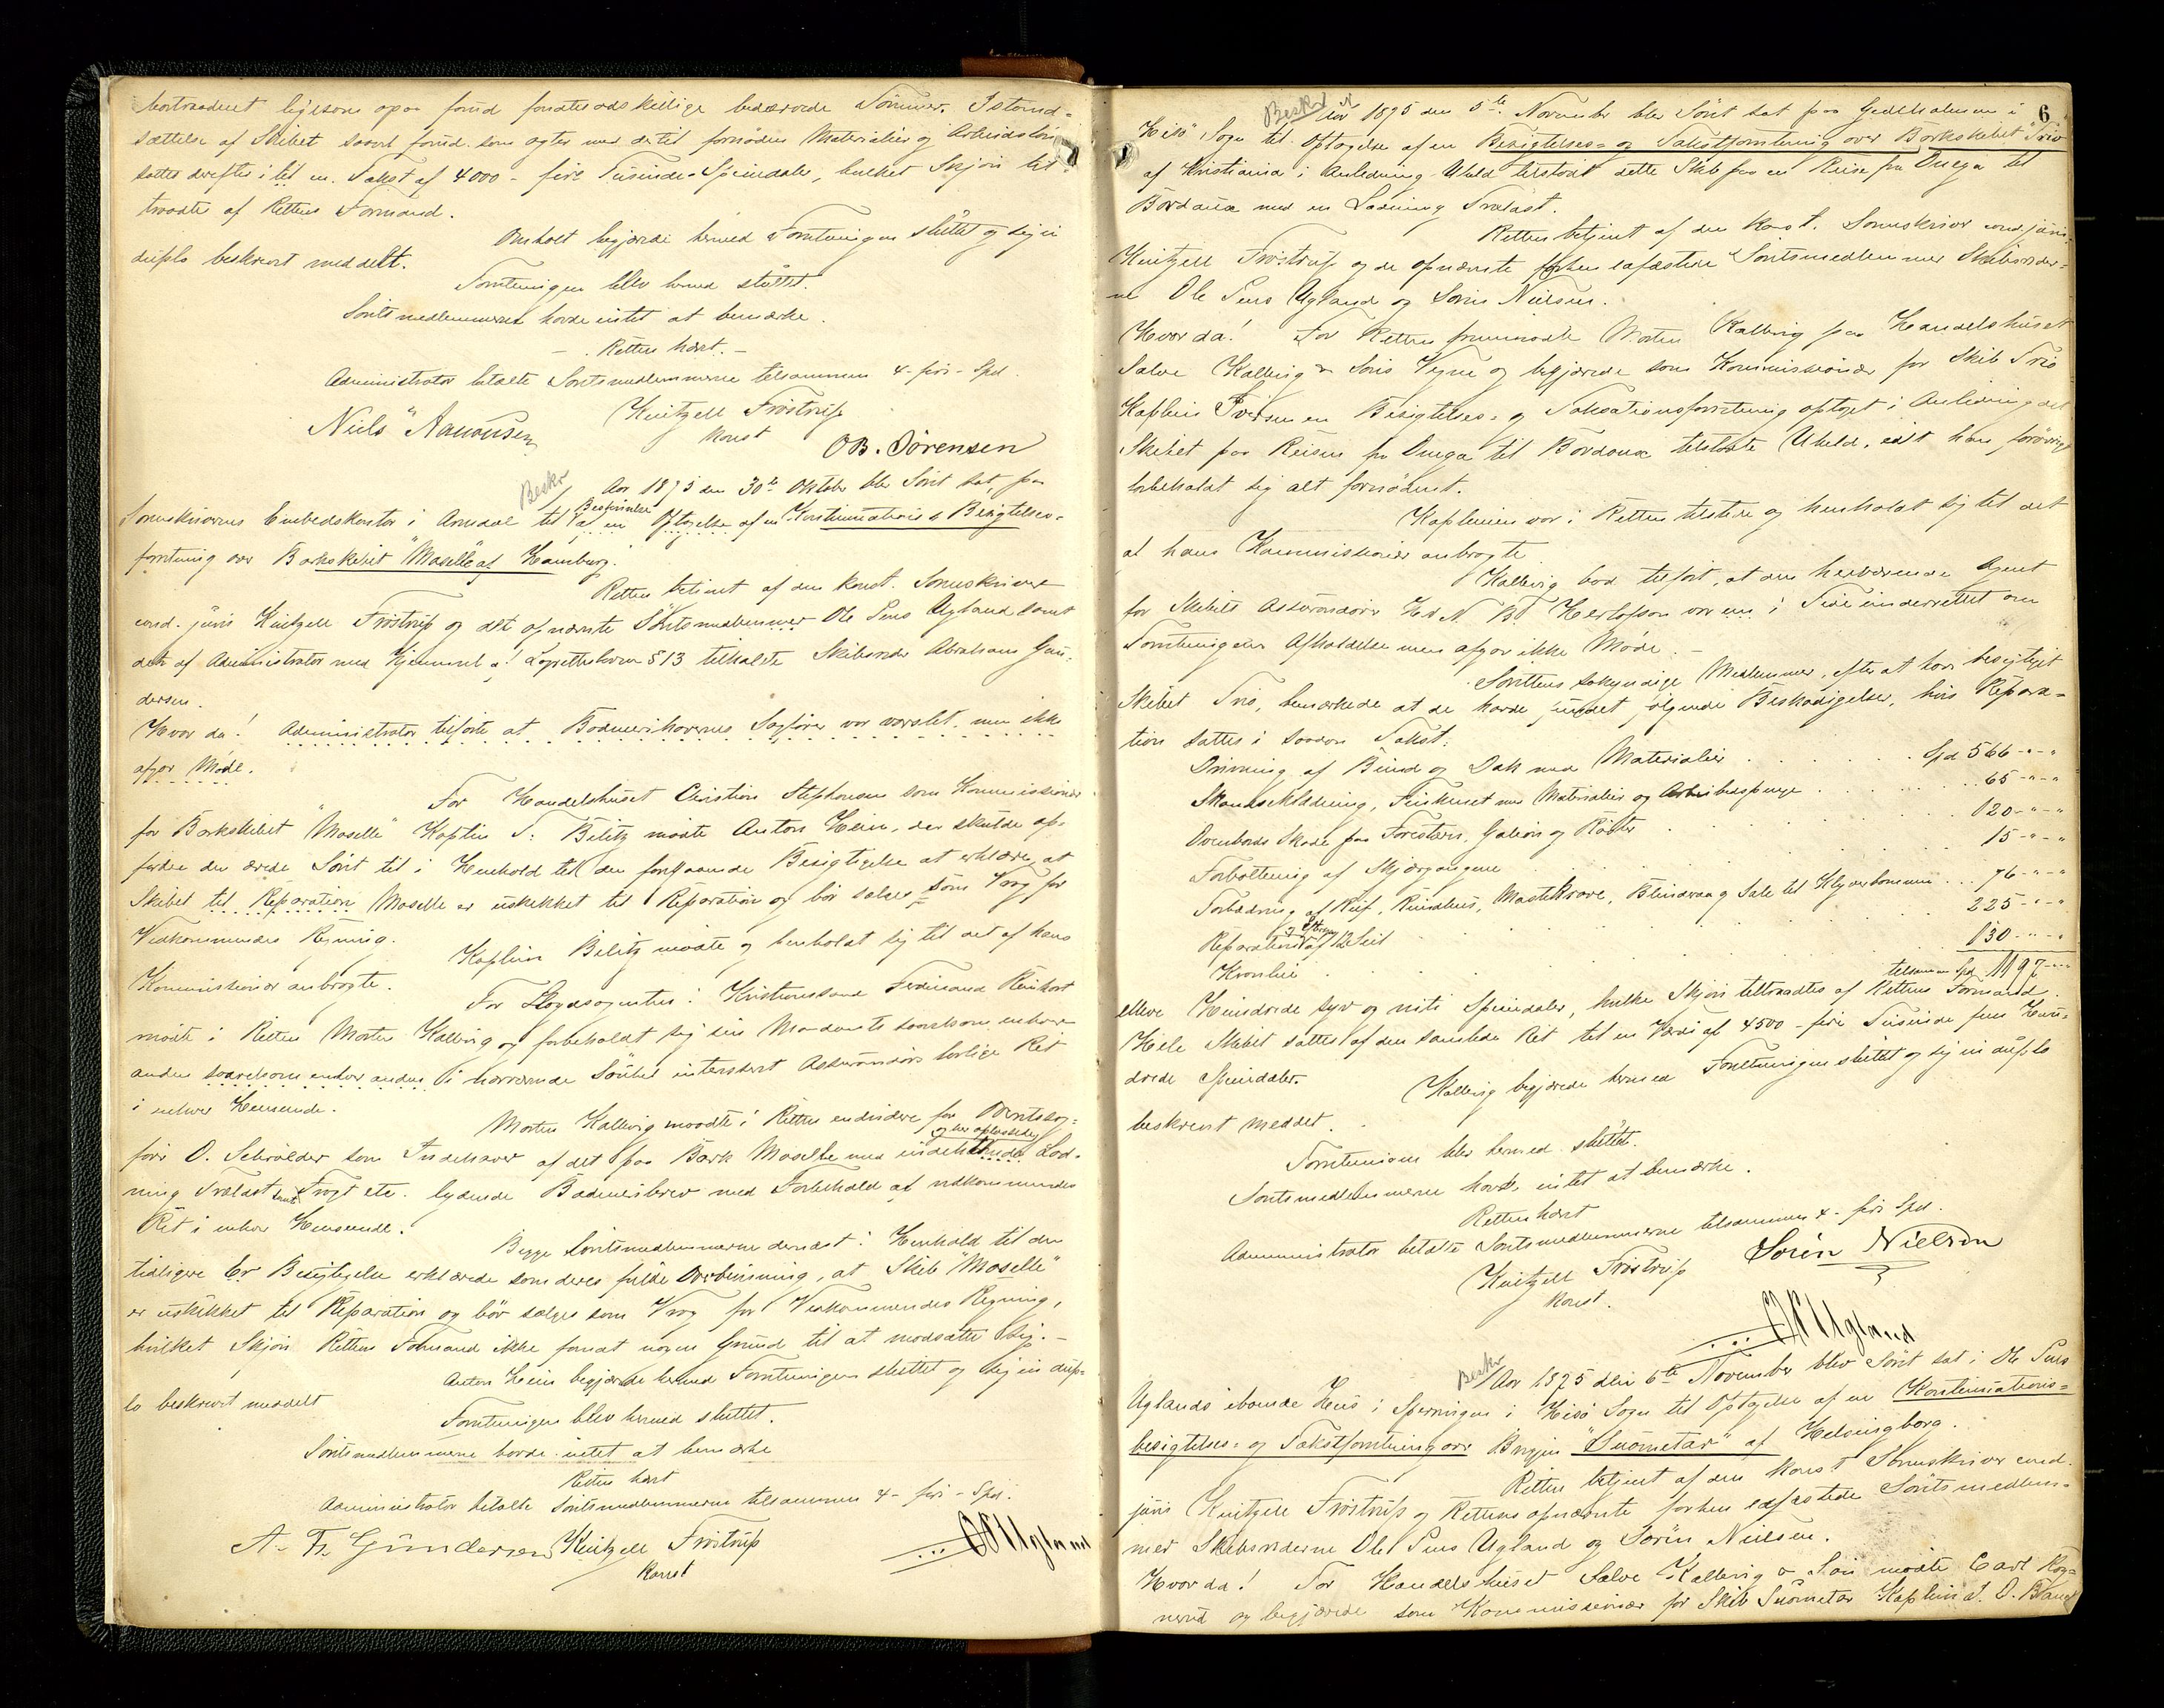 bortraadnet ligesom ogsaa fand forøvrigt adskillige bedærvede Tømmer. Istand-
sættelse af Skibet saavel som agter med dertil fornøden Materialier og Arbeidsløn
sattes derefter i til en Takst af 4000 - fire Tusinde - Speciedaler, hvilket Skjøn til-
traadtes af Rettens Formand.
Omholt begjærde hermed Forretningen sluttet og sig in
duplo beskrevet meddelt.
Forretningen blev hermed sluttet.
Søretsmedlemmerne havde intet at bemærke.
- Retten hævet. -
Administrator betalte Søretsmedlemmerne tilsammen 4 - fire - Spd.
Niels Aanonsen
Kuitzell Frøstrup
Konst
OB. Sørensen
Beskr
Aar 1875 den 30te Oktober blev Søret sat, paa
Sorenskriverens Embedskontor i Arendal til Beskrivelse af en Optagelse af en Kontinuations & Besigtelses-
forretning over Barkskibet "Moselle" af Hamburg.
Retten betjent af den konst. Sorenskriver
cand. juris Kuitzell Frøstrup og det opnævnte Søretsmedlemmer Ole Jens Ugland samt
den af Administrator med Hjemmel af Søretslovens § 13 tilkaldte Skibsreder Abraham Gun-
dersen.
Hvor da! Administrator tilførte at Bodmerihaverens Sagfører var varslet men ikke
afgav Møde.
For Handelshuset Christian Stephansen som Kommissionær
for Barkskibet "Moselle" Kaptein T. Bilitz mødte Anton Hein, der skulde op-
fordre den ærede Søret til i Henhold til den foretagne Besigtigelse at erklære, at
Skibet til Reparation Moselle er uskikket til Reparation og bør sælges som Vrag for
Vedkommendes Regning.
Kaptein Bilitz mødte og henholdt sig til det af hans
Kommissionær anbragte.
For Lloydsagenten i Kristianssand Ferdinand Reinhart
mødte i Retten Morten Kallevig og forbeholdt sig sin Mandants saavelsom enhver
anden saavelsom enhver anden i nærværende Søuheld interesseret Assurandørs lovlige Ret
i enhver Henseende.
Morten Kallevig mødte i Retten endvidere for Overretssag-
fører O. Schrøder som Indehaver af det paa Bark Moselle med indehavende og her oplossede Lad-
ning Trælast samt Fragt etc. lydende Bodmeribrev med Forbehold af vedkommendes
Ret i enhver Henseende.
Begge Søretsmedlemmerne dernæst i Henhold til den
tidligere Besigtigelse erklærede som deres fulde Overbevisning, at Skib "Moselle"
er uskikket til Reparation og bør sælges som Vrag for Vedkommendes Regning,
hvilket Skjøn Rettens Formand ikke fandt nogen Grund til at modsætte sig. -
Anton Hein begjærde hermed Forretningen sluttet og sig in dup-
lo beskrevet meddelt
Forretningen blev hermed sluttet.
Søretsmedlemmerne havde intet at bemærke
Retten hævet
Administrator betalte Søretsmedlemmerne tilsammen 4 - fire - Spd.
A. Fr. Gundersen
Kuitzell Frøstrup
Konst
OJUgland
6
Beskr
Aar 1875 den 5te November blev Søret sat paa Gjedeholmen i
Hisø Sogn til Optagelse af en Besigtelses- og Takstforretning over Barkskibet "Trio"
af Kristiania i Anledning Uheld tilstødt dette Skib paa en Reise fra Onega til
Bordeaux med en Ladning Trælast.
Retten betjent af den konst. Sorenskriver cand. juris
Kuitzell Frøstrup og de opnævnte forhen edfæstede Søretsmedlemmer Skibsreder-
ne Ole Jens Ugland og Sørin Nielsen.
Hvor da! For Retten fremmødte Morten Kallevig paa Handelshuset
Salve Kallevig & Søns Vegne og begjærede som Kommissionær for Skib Trio
Kaptein Iversen en Besigtelses- og Taksationsforretning optaget i Anledning det
Skibet paa Reisen fra Onega til Bordeaux tilstødte Uheld, idet han forøvrigt
forbeholdt sig alt fornødent.
Kapteinen var i Retten tilstede og henholdt sig til det
af hans Kommissionær anbragte
Kallevig bad tilført, at den herværende Agent
for Skibets Assurandører Hr N. B. Herlofson var em i Tide underrettet om
Forretningens Afholdelse men afgav ikke Møde. -
Sørettens søkyndige Medlemmer, efter at have besigtiget
Skibet Trio, bemærkede at de havde fundet følgende Beskadigelser, hvis Repara-
tion sattes i saadan Takst:
Drivning af Bund og Dæk med Materialier . . . . . . Spd 566 - " - "
Skandseklædning, Finkenet med Materialier og Arbeidspenge . . . . 65 - " - "
Ovenbords Skade paa Forstavn, Galion og Røster . . . . 120 - " - "
Forboltning af Skjærgangene . . . . 15 - " - "
Forbedring af Ruf, Rundhus, Mastekrave, Blinderaa og Sale til Klyverbommen . . . 76 - " - "
Reparation og Skring af 12 Seil . . . . 225 - " - "
Kranhie . . . . 130 - " - "
tilsammen Spd 1197 - " - "
elleve Hundrede syv og niti Speciedaler, hvilke Skjøn tiltraadtes af Rettens Formand.
Hele Skibet sattes af den samlede Ret til en Værdi af 4500 - fire Tusinde fem Hun-
drede Speciedaler.
Kallevig begjærede hermed Forretningen sluttet og sig in duplo
beskrevet meddelt.
Forretningen blev hermed sluttet.
Søretsmedlemmerne havde intet at bemærke.
Retten hævet
Administrator betalte Søretsmedlemmerne tilsammen 4 - fire Spd.
Kuitzell Frøstrup
Konst.
Sørin Nielsen
OJUgland
Beskr
Aar 1875 den 6te November blev Søret sat i Ole Jens
Uglands iboende Hus i Sperningen i Hisø Sogn til Optagelse af en Kontinuations-
besigtelses- og Takstforretning over Briggen "Suometar" af Helsingborg.
Retten betjent af den konst Sorenskriver cand.
juris Kuitzell Frøstrup og Rettens opnævnte forhen edfæstede Søretsmedlem-
mer Skibsrederne Ole Jens Ugland og Sørin Nielsen.
Hvor da! For Handelshuset Salve Kallevig & Søn mødte Carl Rog-
nerud og begjærede som Kommissionær for Skib Suometar Kaptein J. O. Brand